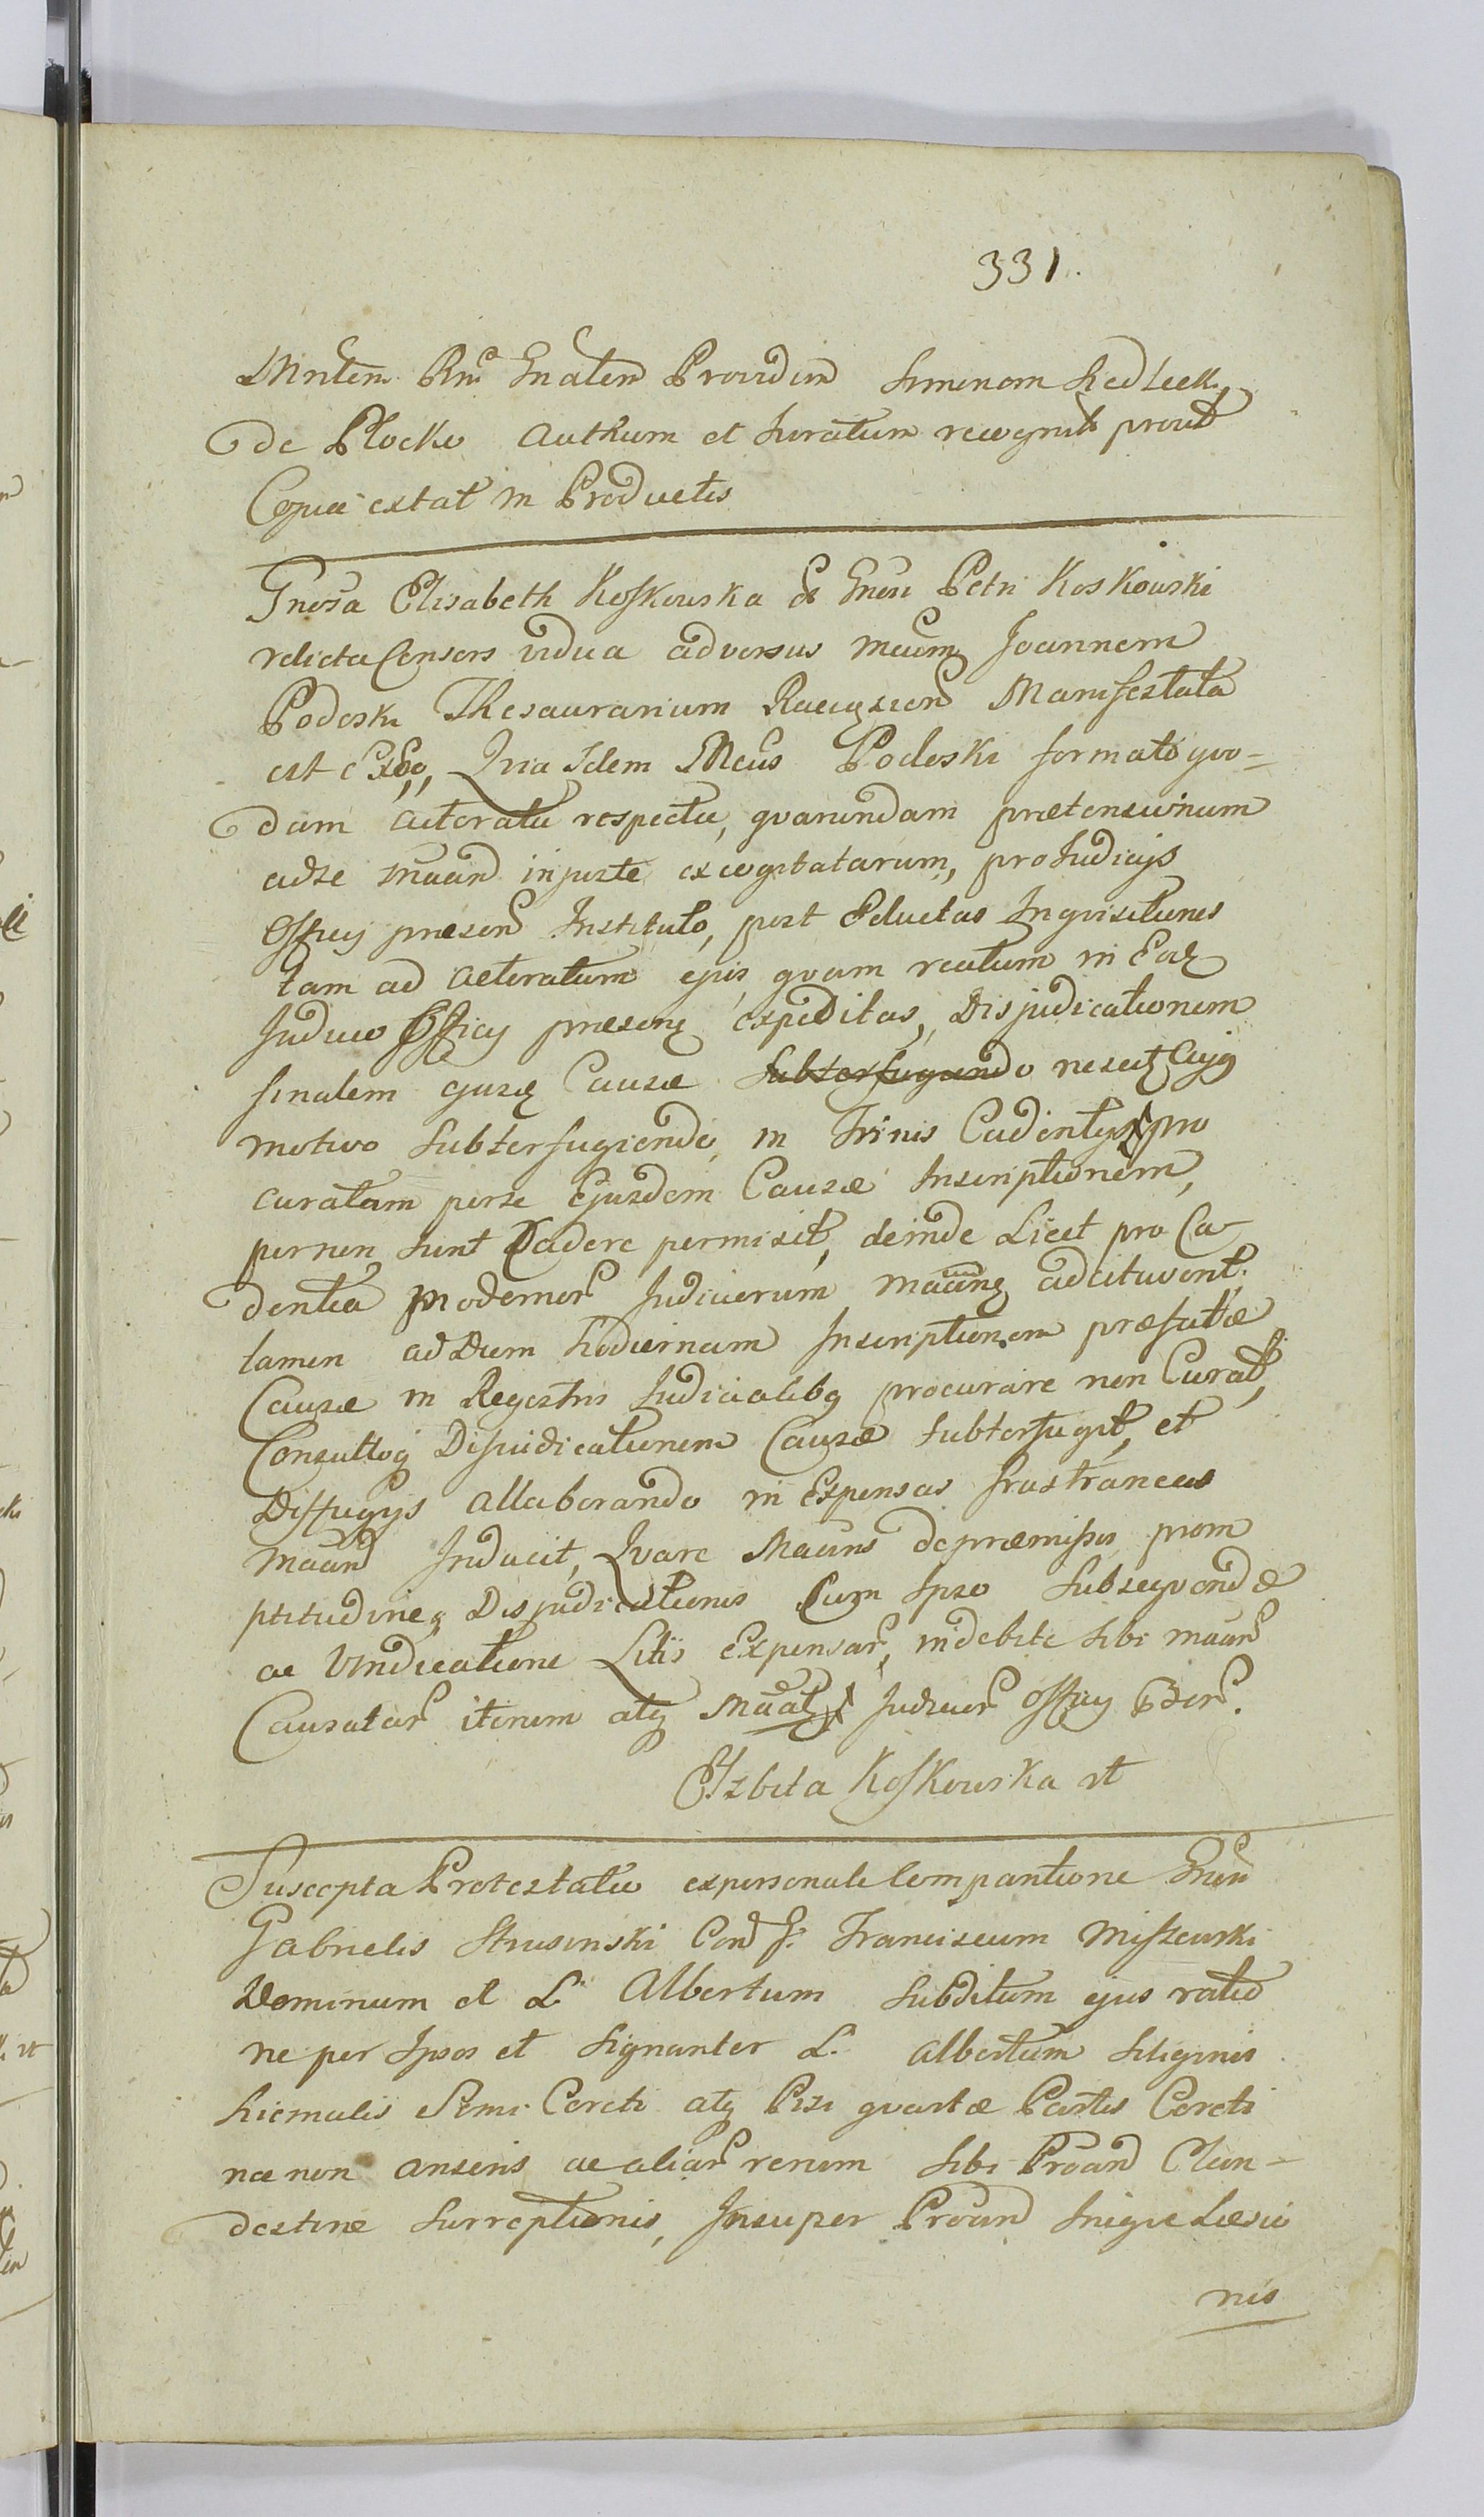 331.
Mntem Rndi Gnalem Providum Simonem Sedlecki
de Plocko Authum et Juratum recognit prout
Copia extat in Productis
Gnosa Elisabeth Koskowska G Gnosi Petri Koskowski
relicta Consors vidua adversus Mcum Joannem
Podoski Thesaurarium Raciąscen Manifestata
est Quia Idem Mcus Podoski formato quo=
dam acteratu respectu, quarundam prætensionum
ad se Maand injuste excogitatarum, pro Judicijs
Officij præsen Instituto, post Eductas Inquisitiones
tam ad acteratum ejus, quam reatum in Eodq
Judicio Officij præsenq expeditas, Disjudicationem
finalem ejusq Causæ Subterfugiendo nescitq Cujq
motivo subterfugiendo, in Trinis Cadentijs pro
curatam per se Ejusdem Causæ Inscriptionem,
per non sunt Cadere permisit, deinde Licet pro Ca-
dentia modernor Judiciorum Maanq adcitavent.
tamen ad Diem hodiernam Inscriptionem præfatæ
Causæ in Regestris Judicialibq procurare non Curat,
Consultoq Disiudicationem Causæ subterfugit, et
Diffugijs allaborando in Expensas frustraneas
Maand Inducit, Quare Maans de præmissis prom
ptitudineq Disjudicationis Cum Ipso subsequendæ
ac Vindicatione Litis Expensar, indebite sibi Maanr
Causatar iterum atq Maatq Judicior Officij
Elzbieta Koskowska rt
Suscepta Protestatio ex personali Compantione Gnosi
Gabrielis Strusinski Con G. Franciscum Miszewski
Dominum et L. Albertum subditum ejus ratio
ne per Ipsos et signanter L. Albertum siliginis
hiemalis Semi Coreti atq Pisi quartæ Partis Coreti
nec non anseris ac aliar rerum sibi Proand Clan-
destinæ surreptionis, Insuper Proand Iniquæ Læsio
nis